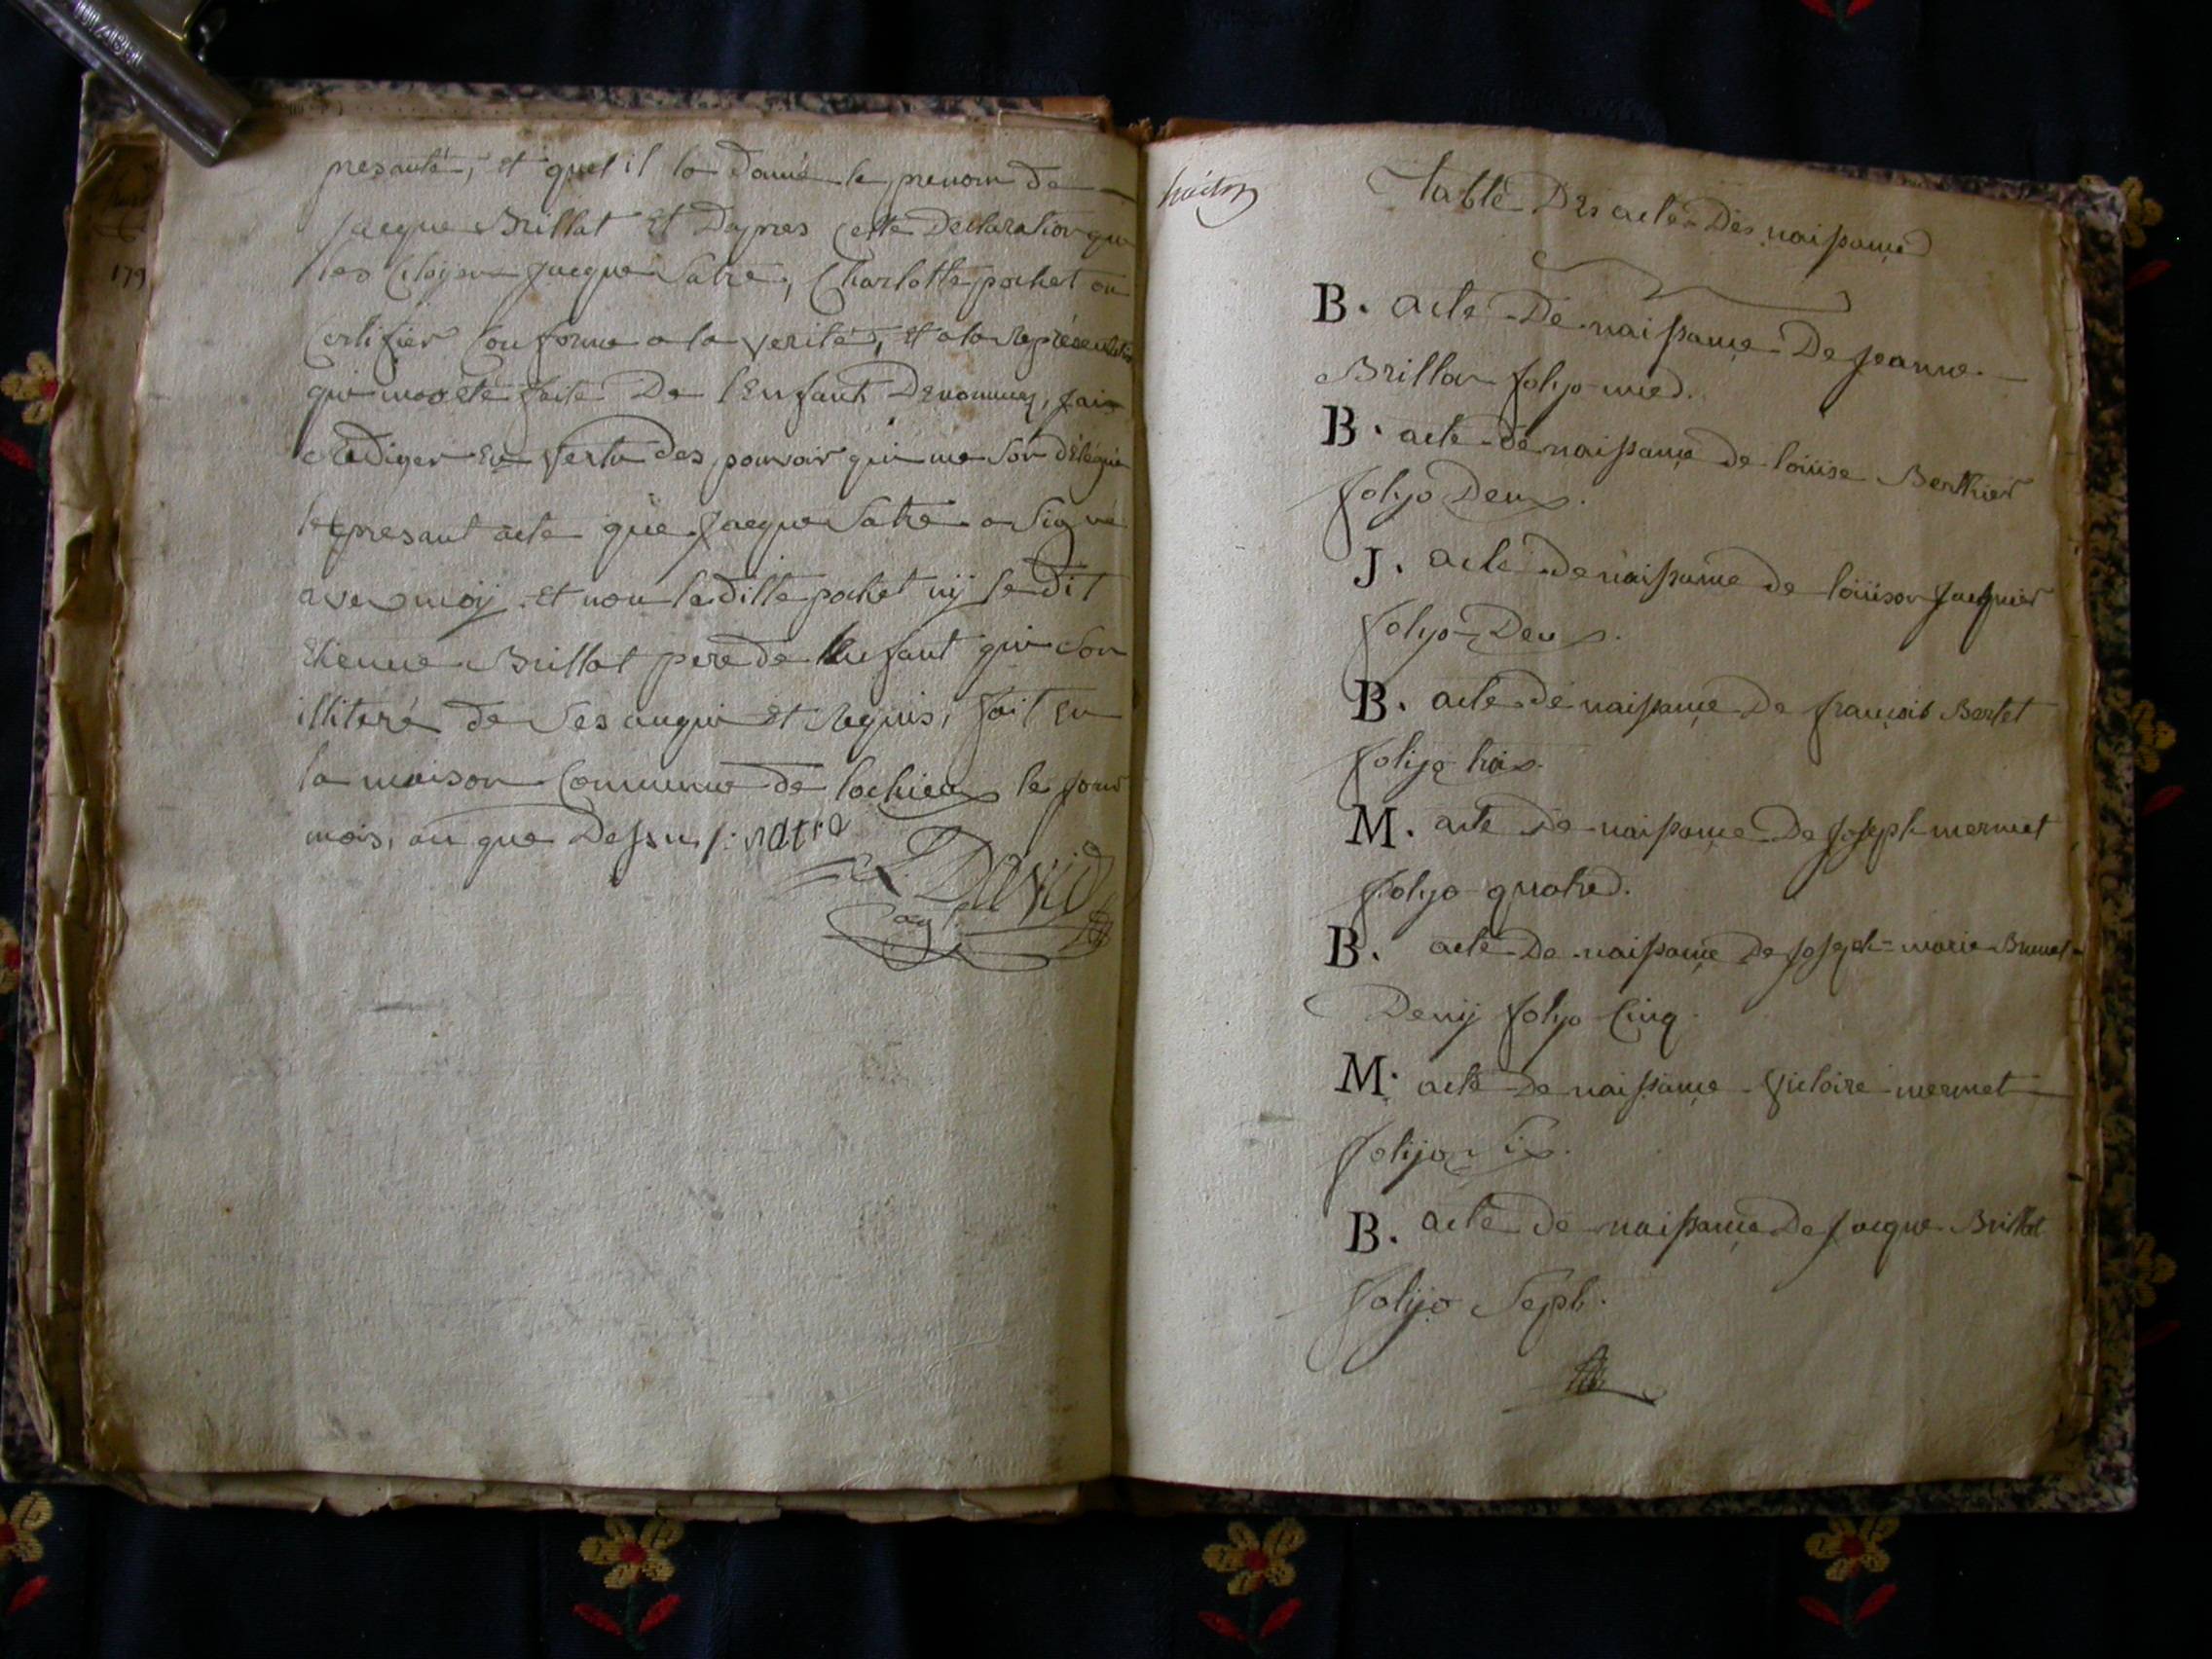 179
presanté, et quel il la donné le prenom de
Jacque Brillat Et Dapres cette Declaration que
les Citoyen Jacque Satre, Charlotte pochet on
Certifier Conforme a la verité, Et a la représentation
qui moesté faite De l'Enfant Denommez, jaix
Rediger En vertu des pouvoir qui me son délégué
le presant acte que Jacque Satre a Signé
avec moÿ. Et non la ditte pochet nÿ le dit
Etienne Brillat pere de lenfant qui son
illiteré de Ses anqui et Requis, fait En
la maison Commune de lochieux le jour
mois, an que Dessus /: satre
David
Table Des acte Des naissance
B. acte De naissance De Jeanne
Brillat folyo une.
B. acte de naissance de loüise Berthier
folyo Deux.
J. acte de naissance de loüison Jacquier
folyo Deux.
B. acte de naissance De françois Bertet
folyo troix.
M. acte de naissance De Joseph mermet
folyo quatre.
B. acte De naissance De Joseph=marie Brunet
Denij folyo Cinq
M. acte De naissance Victoire mermet
folijo Six.
B. acte de naissance De Jacque Brillat
folijo Sept.